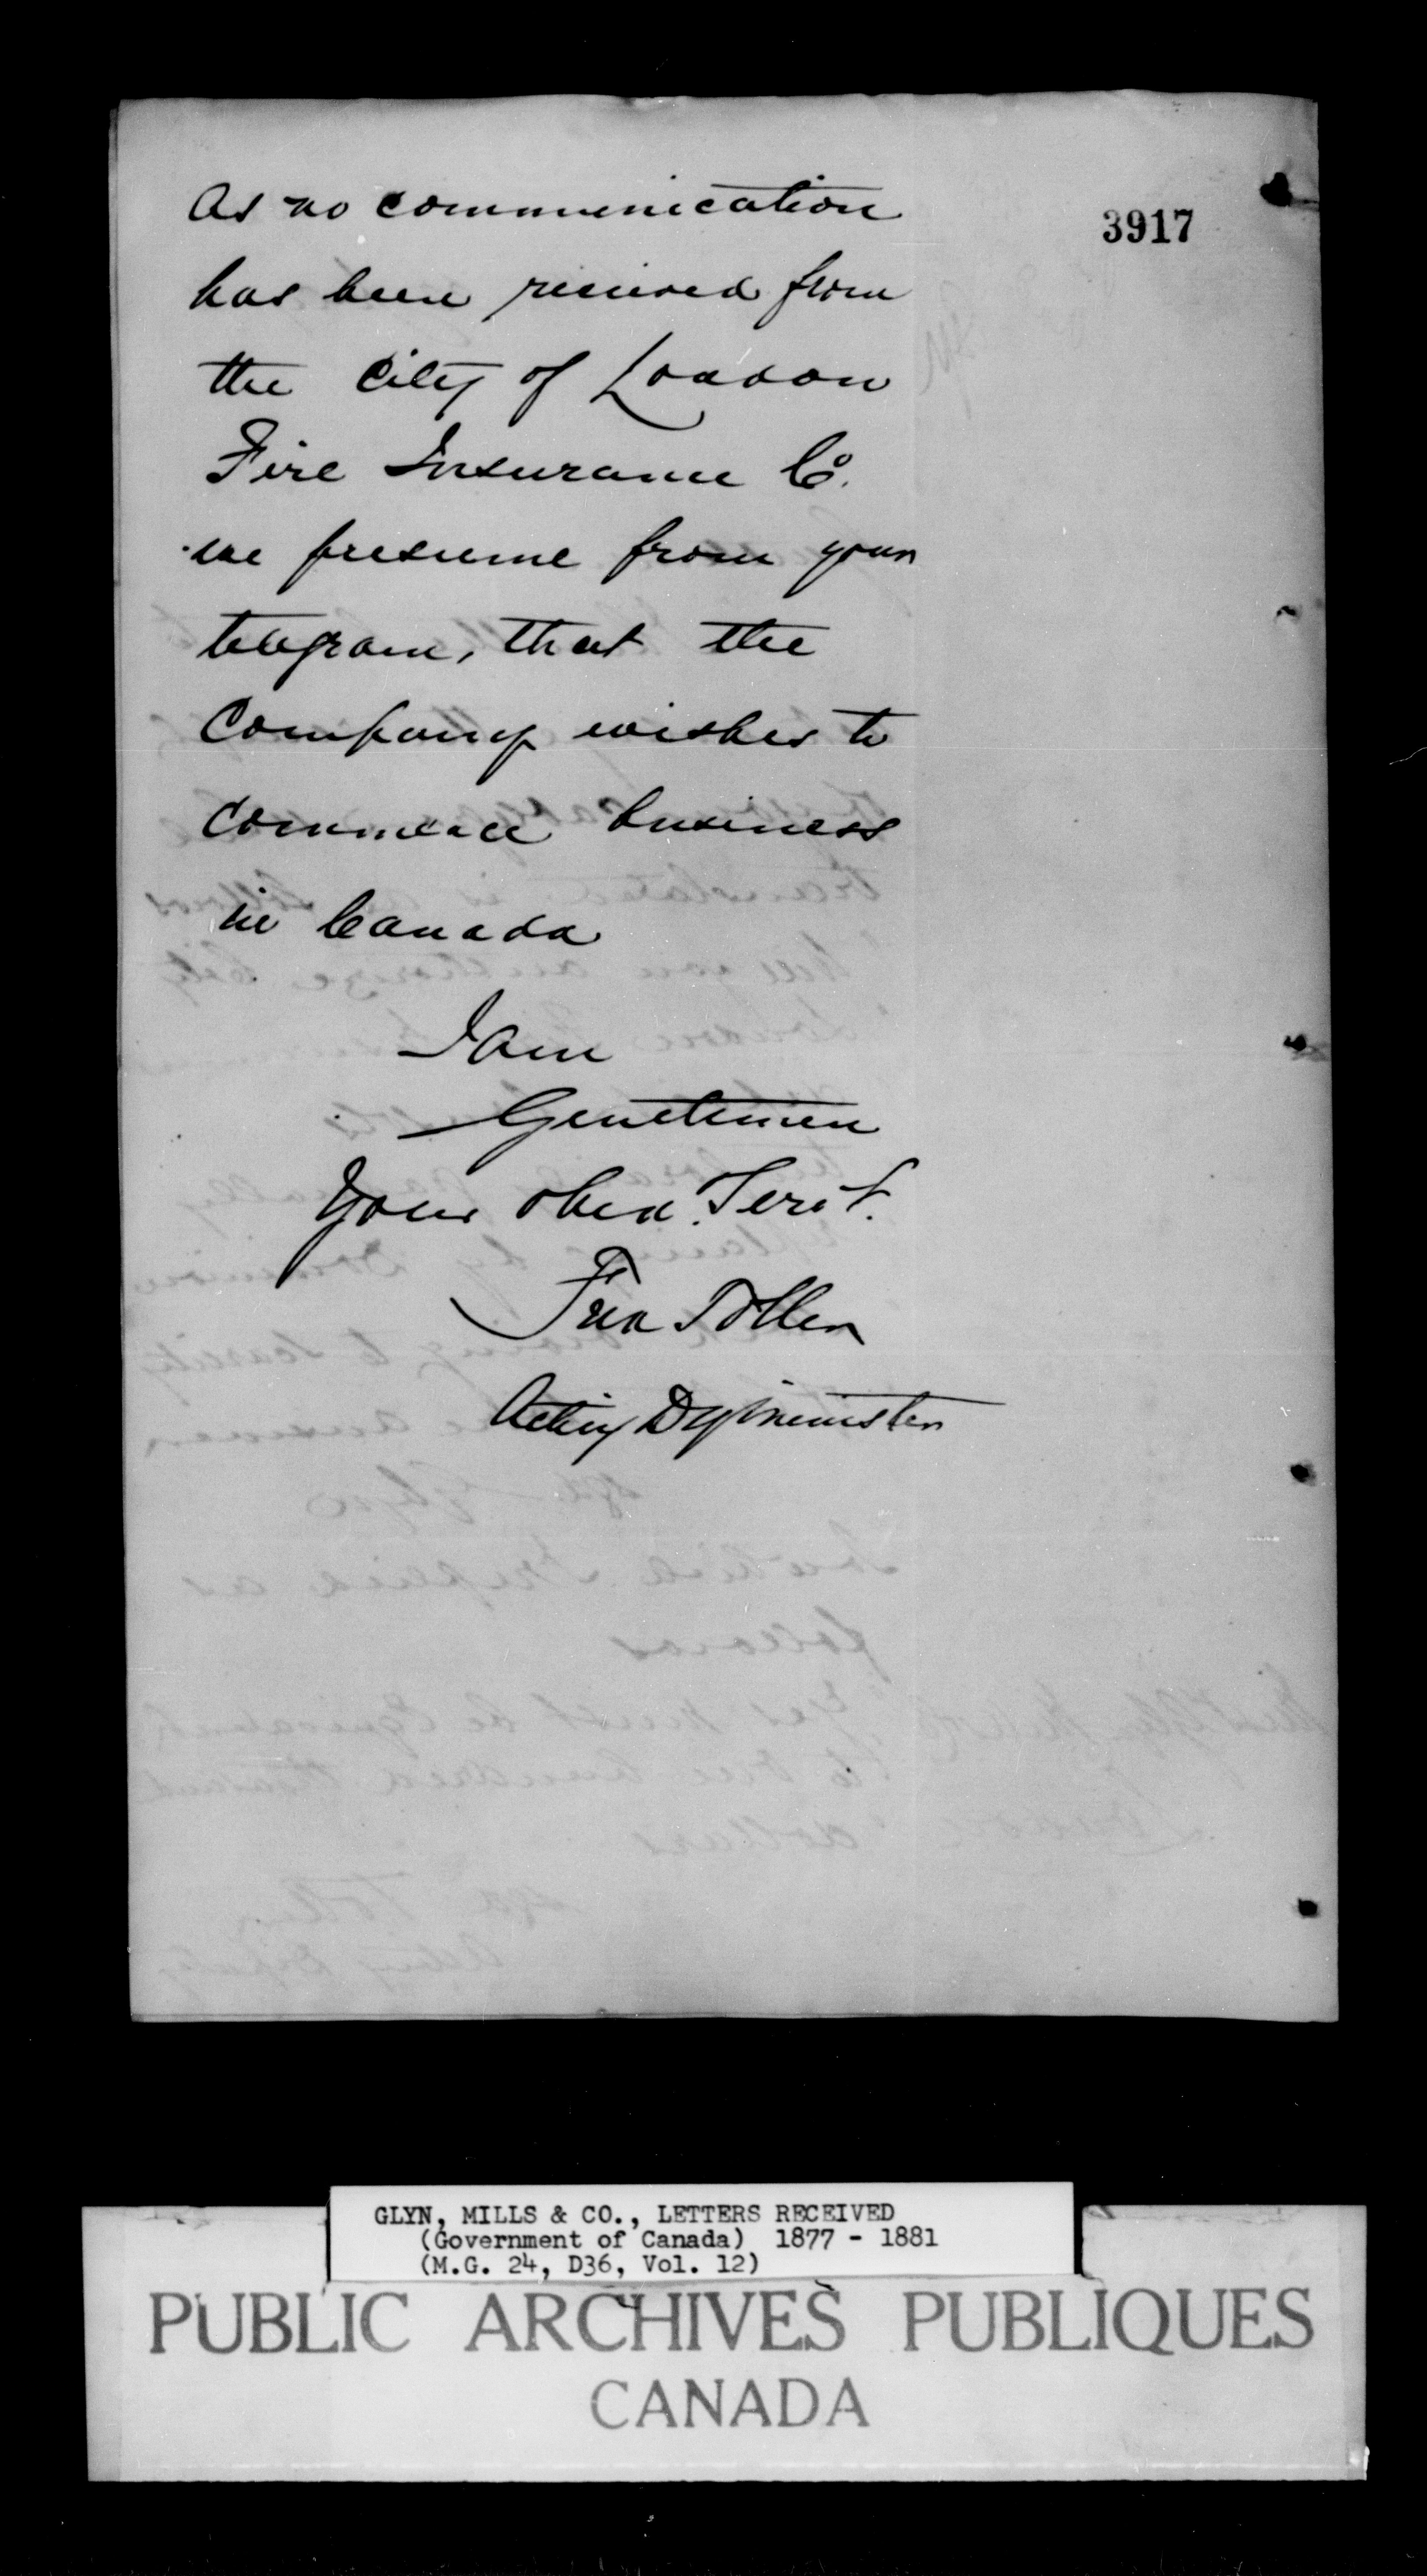 3917
As no communication
has been received from
the City of London
Fire Insurance Co.
we presume from your
telegram, that the
Company wishes to
commence business
in Canada
I am
Gentlemen
Your obed. Servt.
Acting Dy Minister
GLYN, MILLS & CO., LETTERS RECEIVED
(Government of Canada) 1877 - 1881
(M.G. 24, D36, Vol. 12)
PUBLIC ARCHIVES PUBLIQUES
CANADA